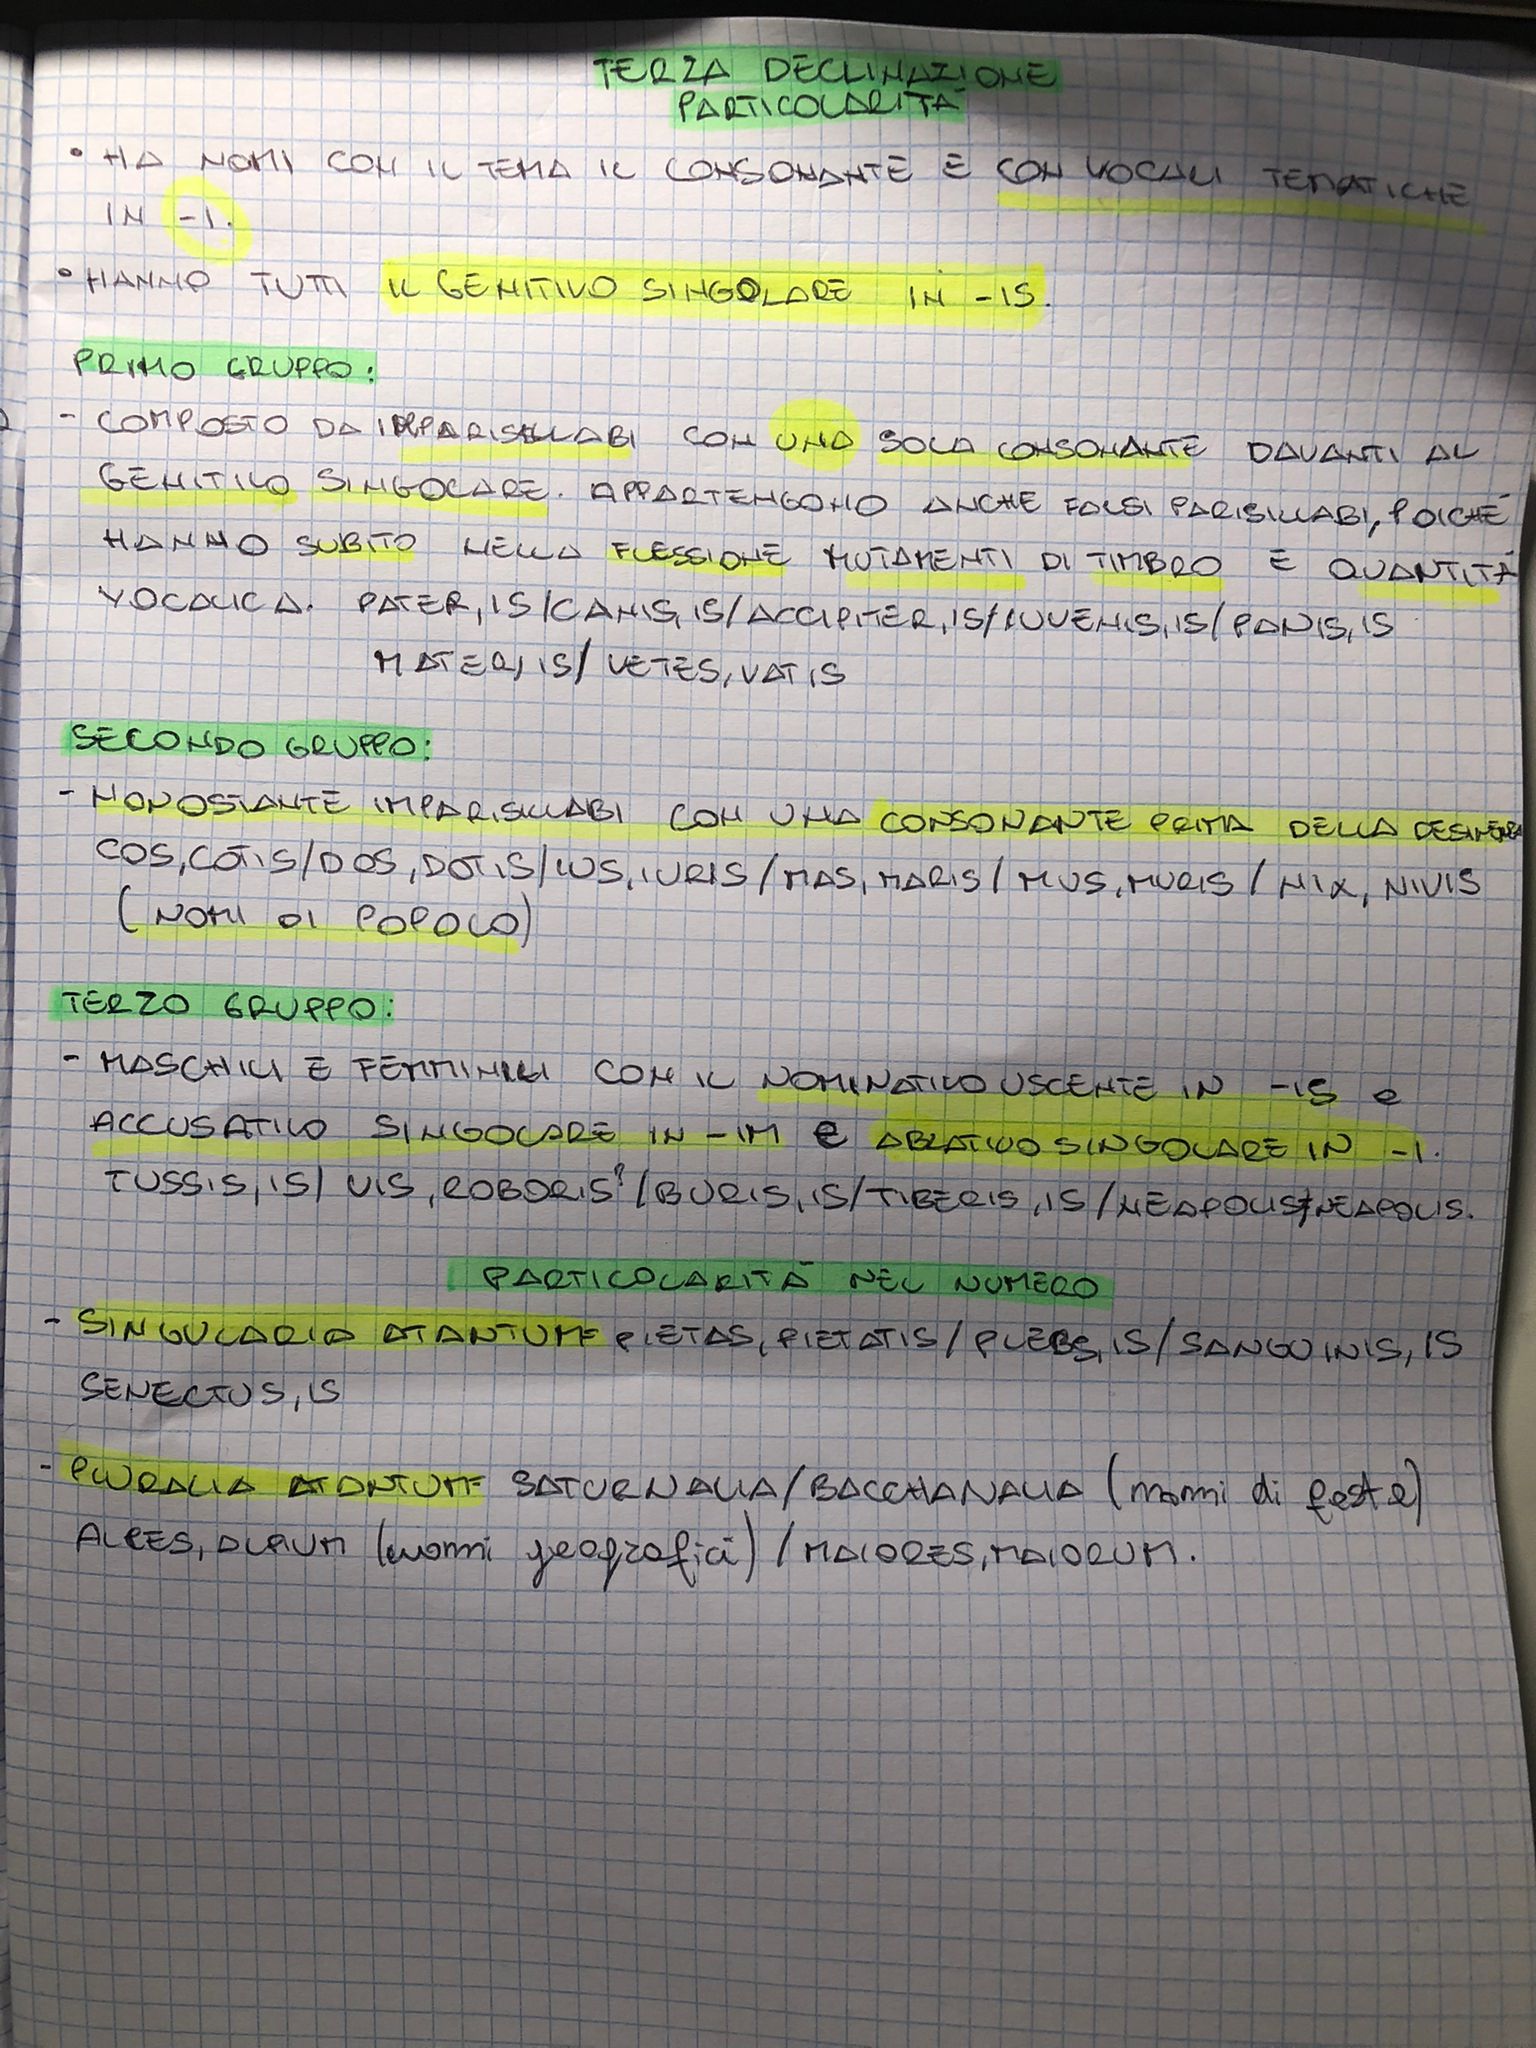 TERZA DECLINAZIONE
PARTICOLARITÀ
• HA NOMI CON IL TEMA IL CONSONANTE E CON VOCALI TEMATICHE
IN -I.
• HANNO TUTTI IL GENITIVO SINGOLARE IN -IS.
PRIMO GRUPPO:
- COMPOSTO DA IMPARISILLABI CON UNA SOLA CONSONANTE DAVANTI AL
GENITIVO SINGOLARE. APPARTENGONO ANCHE FALSI PARISILLABI, POICHÉ
HANNO SUBITO NELLA FLESSIONE MUTAMENTI DI TIMBRO E QUANTITÀ
VOCALICA. PATER, IS/CANIS, IS/ACCIPITER, IS/IUVENIS, IS/PANIS, IS
MATER, IS/ VETES, VATIS
SECONDO GRUPPO:
- NONOSTANTE IMPARISILLABI CON UNA CONSONANTE PRIMA DELLA DESINENZA
COS, COTIS/DOS, DOTIS/IUS, IURIS/MAS, MARIS/MUS, MURIS/NIX, NIVIS
(NOMI DI POPOLO)
TERZO GRUPPO:
- MASCHILI E FEMMINILI CON IL NOMINATIVO USCENTE IN -IS e
ACCUSATIVO SINGOLARE IN -IM E ABLATIVO SINGOLARE IN -I.
TUSSIS, IS/ VIS, ROBORIS?/BURIS, IS/TIBERIS, IS/NEAPOLIS/NEAPOLIS.
PARTICOLARITÀ NEL NUMERO
- SINGULARIA PIETAS, PIETATIS/PLEBS, IS/SANGUINIS, IS
SENECTUS, IS
- PLURALIA SATURNALIA/BACCHANALIA (nomi di feste)
ALPES, ALPIUM (nomi geografici) / MAIORES, MAIORUM.